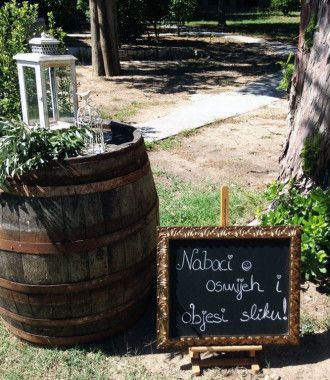 Nabaci ☺
osmijeh i
objesi sliku!